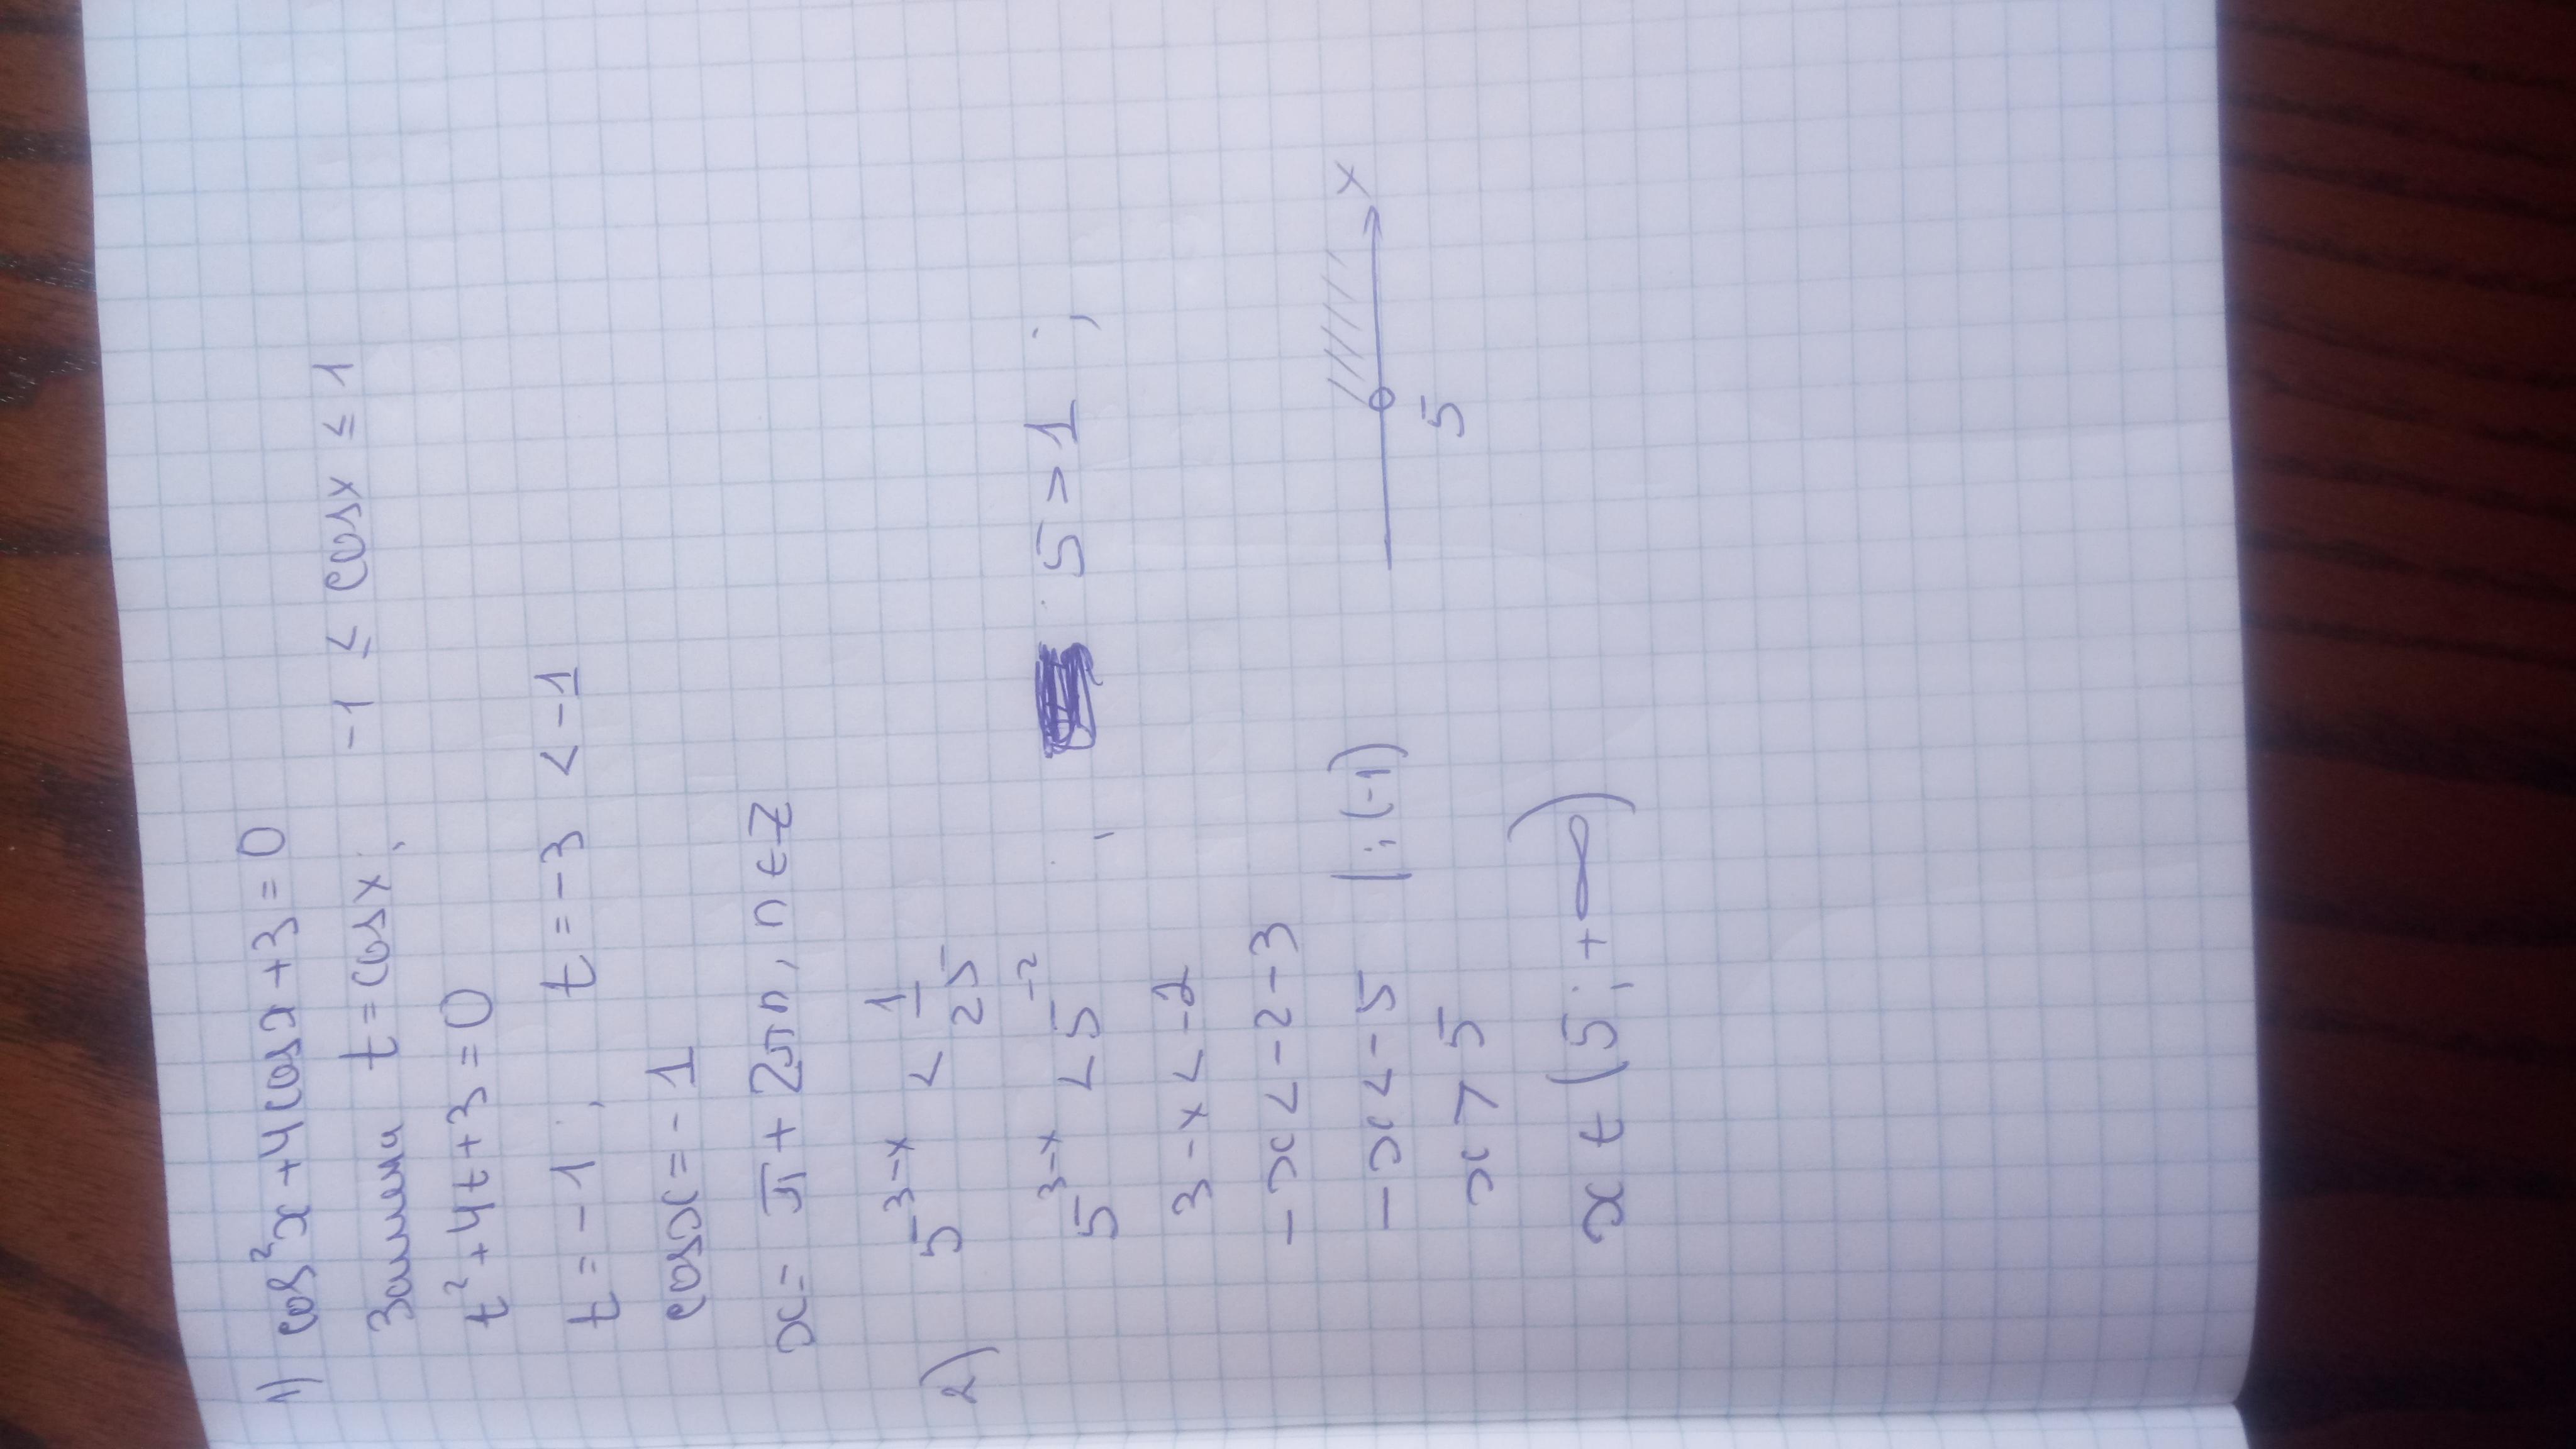 1) cos²x + 4cosx + 3 = 0
Замена t = cosx; -1 ≤ cosx ≤ 1
t² + 4t + 3 = 0
t = -1; t = -3 < -1
cosx = -1
x = π + 2πn, n ∈ Z
2) 5^(3-x) < 1/25
5^(3-x) < 5^(-2) ; 5 > 1 ;
3 - x < -2
-x < -2 - 3
-x < -5 | :(-1)
x > 5
x ∈ (5; +∞)
x
5